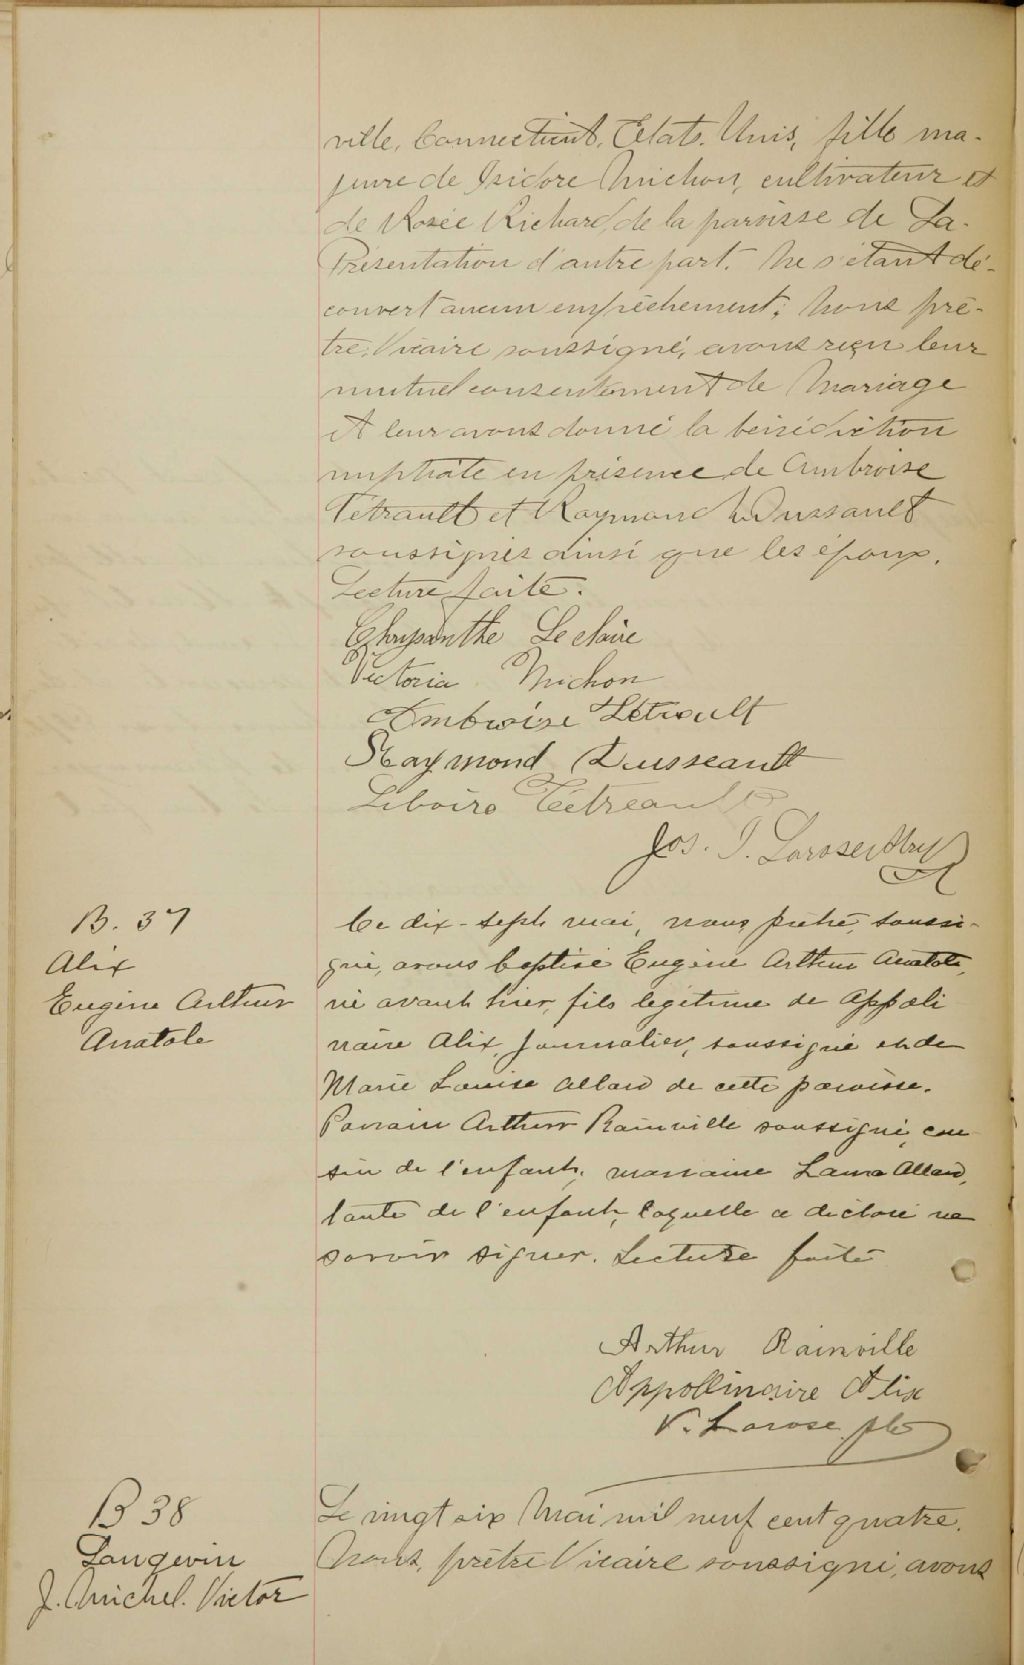 ville, Connecticut, Etats. Unis, fille ma-
jeure de Isidore Michon, cultivateur et
de Rosée Richard, de la paroisse de La-
Présentation d'autre part. Ne s'étant dé-
couvert aucun empêchement; Nous prê-
tre, Vicaire soussigné, avons reçu leur
mutuel consentement de Mariage
et leur avons donné la bénédiction
nuptiale en présence de Ambroise
Tétrault et Raymond Dussault
soussignés ainsi que les époux.
Lecture faite.
Chrysanthe Leclaire
Victoria Michon
Ambroise Tétrault
Raymond Dusseault
Liboire Tétreault
Jos. I. Larose
B. 37
Alix
Eugène Arthur
Anatole
Ce dix-sept mai, nous prêtre, soussi-
gné, avons baptisé Eugène Arthur Anatole,
né avant hier, fils légitime de Appoli
naire Alix, Journalier, soussigné et de
Marie Louise Allard de cette paroisse.
Parrain Arthur Rainville soussigné, cou
sin de l'enfant; marraine Laura Allard,
tante de l'enfant, laquelle a déclaré ne
savoir signer. Lecture faite
Arthur Rainville
Appollinaire Alix
V. Larose ptr
B 38
Langevin
J. Michel. Victor
Le vingt six Mai mil neuf cent quatre.
Nous, prêtre Vicaire soussigné, avons